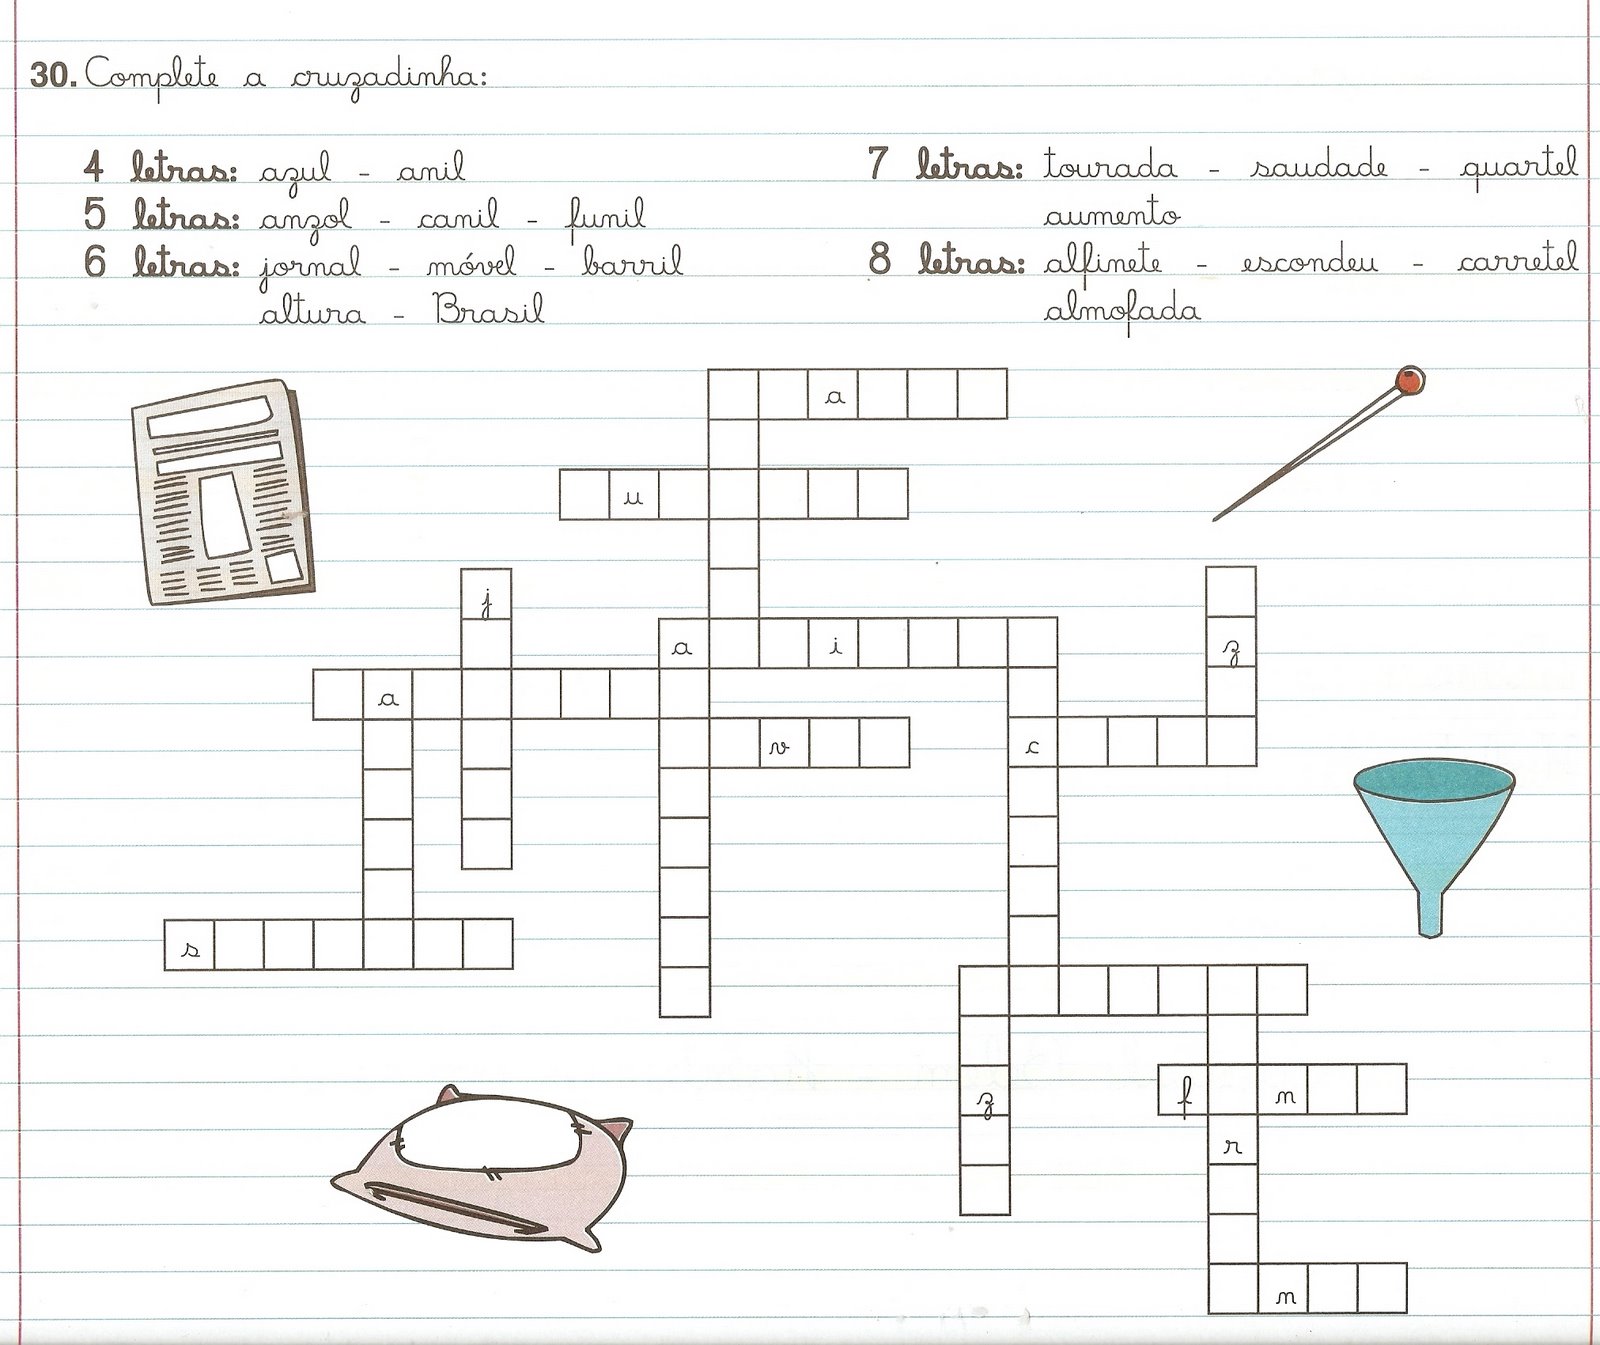 30. Complete a cruzadinha:
4 letras: azul - anil
5 letras: anzol - canil - funil
6 letras: jornal - móvel - barril
altura - Brasil
7 letras: tourada - saudade - quartel
aumento
8 letras: alfinete - escondeu - carretel
almofada
a
u
j
a i z
a
v c
s
z f n
r
n